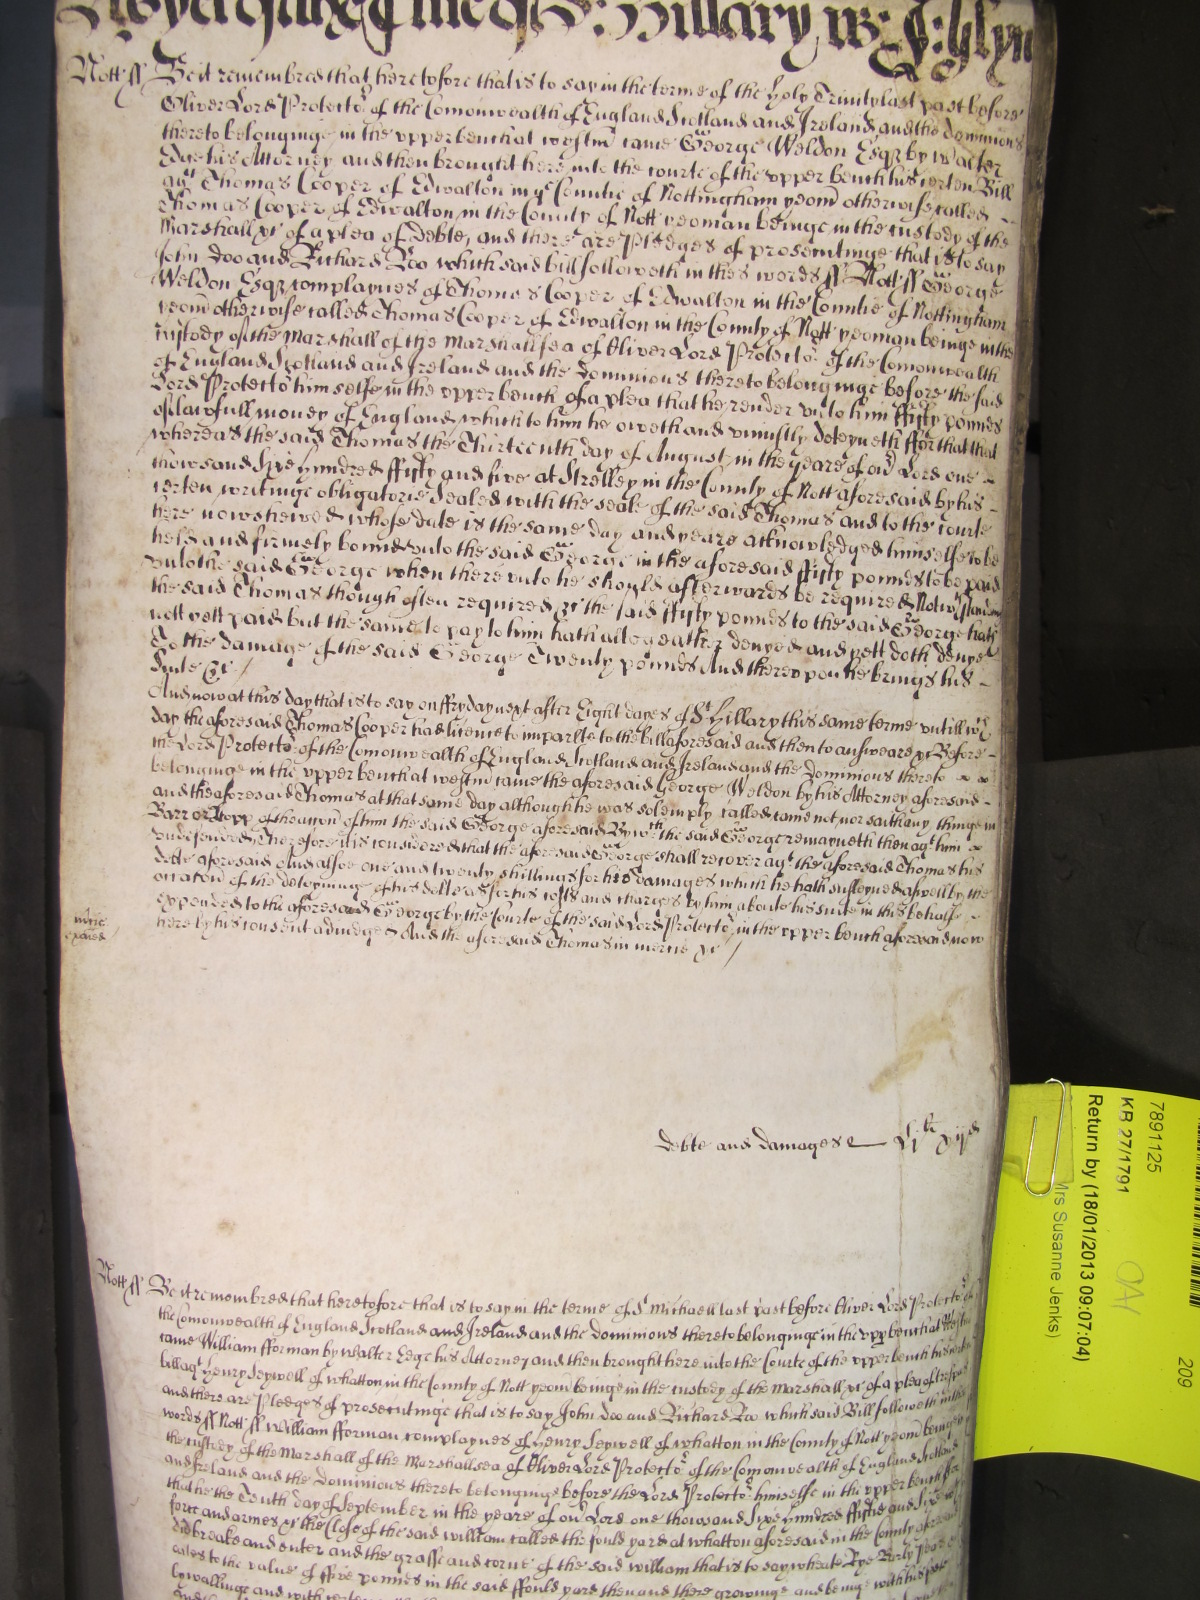 Hillary
Nott ss Be it remembred that heretofore that is to say in the terme of the holy Trinity last past before
Oliver Lord Protector of the Comonwealth of England Scotland and Ireland and the dominions
thereto belonginge in the upper bench at westmr came George Weldon Esqr by walter
Edge his Attorney and then brought here into the courte of the upper bench his certen Bill
agt Thomas Cooper of Edwalton in ye Countie of Nottingham yeom otherwise called
Thomas Cooper of Edwalton in the County of Nott yeoman beinge in the custody of the
Marshall &c of a plea of Debte, and there are Pledges of prosecutinge that is to say
John Doo and Richard Roo which said bill followeth in thes words ss Nott ss George
Weldon Esqr complaynes of Thomas Cooper of Edwalton in the Countie of Nottingham
yeom otherwise called Thomas Cooper of Edwalton in the County of Nott yeoman beinge in the
custody of the Marshall of the Marshallsea of Oliver Lord Protector of the Comonwealth
of England Scotland and Ireland and the Dominions thereto belonginge before the said
Lord Protector him selfe in the upper bench of a plea that he render unto him ffifty pounds
of lawfull money of England which to him he oweth and uniustly deteyneth ffor that that
whereas the said Thomas the Thirteenth day of August in the yeare of our Lord one
thowsand Sixe hundred ffifty and five at Strelley in the County of Nott aforesaid by his
certen writinge obligatorie Sealed with the seale of the said Thomas and to the courte
here now shewed whose date is the same day and yeare acknowledged himselfe to be
held and firmely bound unto the said George in the aforesaid ffifty pounds to be paid
unto the said George when there unto he should afterwards be required Notwthstanding
the said Thomas though often required &c the said ffifty pounds to the said George hath
nott yett paid but the same to pay to him hath altogeather denyed and yett doth denye
To the damage of the said George Twenty pounds And thereupon he brings his
Suite &c /
And now at this day that is to say on ffryday next after Eight dayes of St Hillary this same terme untill wch
day the aforesaid Thomas Cooper had licence to imparle to the bill aforesaid and then to answeare &c Before
the Lord Protector of the Comonwealth of England Scotland and Ireland and the Dominions thereto
belonginge in the upper bench at westmr came the aforesaid George Weldon by his Attorney aforesaid
and the aforesaid Thomas at that same day although he was solemply called came not, nor saith any thinge in
Barr or stopp of the accon of him the said George aforesaid By wch the said George remayneth then agt him
undefended, Therefore it is considered that the aforesaid George shall recover agt the aforesaid Thomas his
debte aforesaid And alsoe one and twenty shillings for his damages which he hath susteyned aswell by the
occacon of the deteyninge of his debte as for his costs and charges by him aboute his suite in this behalfe
mercie
expended to the aforesaid George by the Courte of the said Lord Protector in the upper bench aforesaid now
here by his consent adiudged And the aforesaid Thomas in mercie &c /
debte and damages
Nott ss Be it remembred that heretofore that is to say in the terme of St Michaell last past before Oliver Lord Protector of
the Comonwealth of England Scotland and Ireland and the dominions thereto belonginge in the upper bench at
came William fforman by Walter Edge his Attorney and then brought here into the Courte of the upper bench his
bill agt Henry Seywell of whatton in the County of Nott yeom beinge in the custody of the Marshall &c of a plea of
and there are Pledges of prosecutinge that is to say John Doo and Richard Roo which said Bill followeth in
words ss Nott ss William fforman complaynes of Henry Seywell of whatton in the County of Nott yeom beinge
the custody of the Marshall of the Marshallsea of Oliver Lord Protector of the Comonwealth of England Scotland
and Ireland and the Dominions thereto belonginge before the Lord Protector himselfe in the upper bench
that he the Tenth day of September in the yeare of our Lord one thowsand Sixe hundred ffiftie and Sixe
force and armes &c the Close of the said william called the fould yard at whatton aforesaid in the County aforesaid
did breake and enter and the grasse and corne of the said william that is to say wheate Rye Barly
oates to the value of ffive pounds in the said ffould yard then and there growinge and beinge with his
7891125
KB 27/1791
Return by (18/01/2013 09:07:04)
Mrs Susanne Jenks)
209